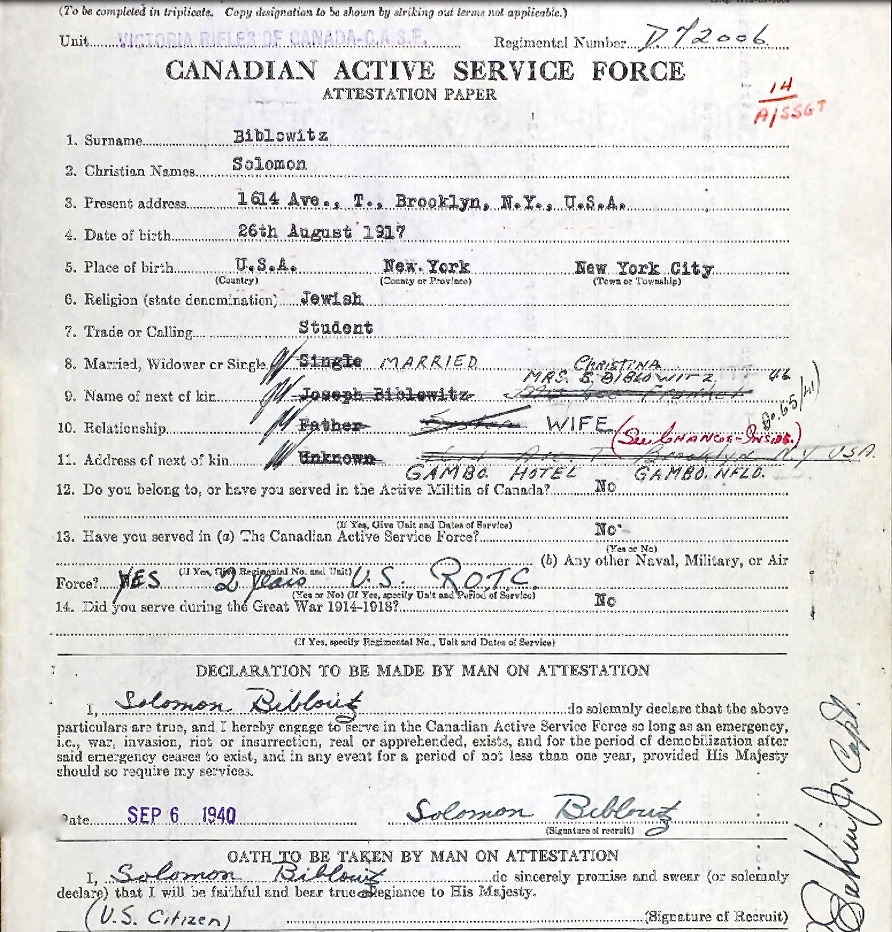 (To be completed in triplicate. Copy designation to be shown by striking out terms not applicable.)
Unit VICTORIA RIFLES OF CANADA-C.A.S.F. Regimental Number D 72006
CANADIAN ACTIVE SERVICE FORCE
ATTESTATION PAPER
14
A/SSGT
1. Surname Biblowitz
2. Christian Names Solomon
3. Present address 1614 Ave., T., Brooklyn, N.Y., U.S.A.
4. Date of birth 26th August 1917
5. Place of birth U.S.A. New York New York City
(Country) (County or Province) (Town or Township)
6. Religion (state denomination) Jewish
7. Trade or Calling Student
8. Married, Widower or Single Single MARRIED CHRISTINA
MRS. S. BIBLOWITZ 46
9. Name of next of kin Joseph Biblowitz
10. Relationship Father WIFE 65/41
(See CHANGE-INSIDE.)
11. Address of next of kin Unknown Brooklyn NY USA.
GAMBO. HOTEL GAMBO. NFLD.
12. Do you belong to, or have you served in the Active Militia of Canada? No
(If Yes, Give Unit and Dates of Service)
13. Have you served in (a) The Canadian Active Service Force? No
(Yes or No)
(b) Any other Naval, Military, or Air
(If Yes, Give Regimental No. and Unit)
Force? YES 2 years U.S. R.O.T.C.
(Yes or No) (If Yes, specify Unit and Period of Service)
14. Did you serve during the Great War 1914-1918? No
(If Yes, specify Regimental No., Unit and Dates of Service)
DECLARATION TO BE MADE BY MAN ON ATTESTATION
I, Solomon Biblowitz do solemnly declare that the above
particulars are true, and I hereby engage to serve in the Canadian Active Service Force so long as an emergency,
i.e., war, invasion, riot or insurrection, real or apprehended, exists, and for the period of demobilization after
said emergency ceases to exist, and in any event for a period of not less than one year, provided His Majesty
should so require my services.
Date SEP 6 1940 Solomon Biblowitz
(Signature of recruit)
OATH TO BE TAKEN BY MAN ON ATTESTATION
I, Solomon Biblowitz do sincerely promise and swear (or solemnly
declare) that I will be faithful and bear true allegiance to His Majesty.
(U.S. Citizen) (Signature of Recruit)
Capt.